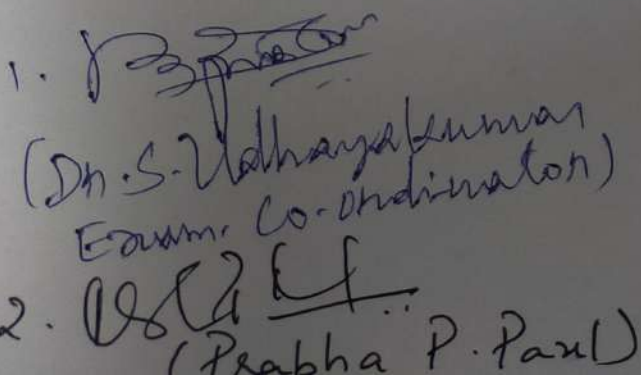 1.
(Dr. S. Udhayakumar
Exam. Co-ordinator)
2.
(Prabha P. Paul)